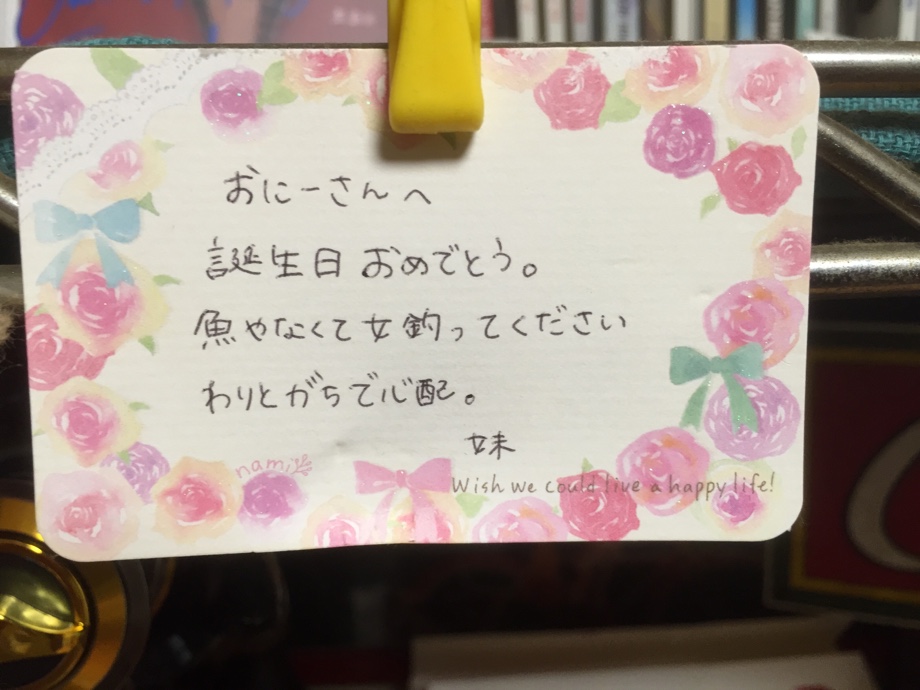 おにーさんへ
誕生日おめでとう。
魚やなくて女釣ってください
わりとがちで心配。
妹
nami
Wish we could live a happy life!